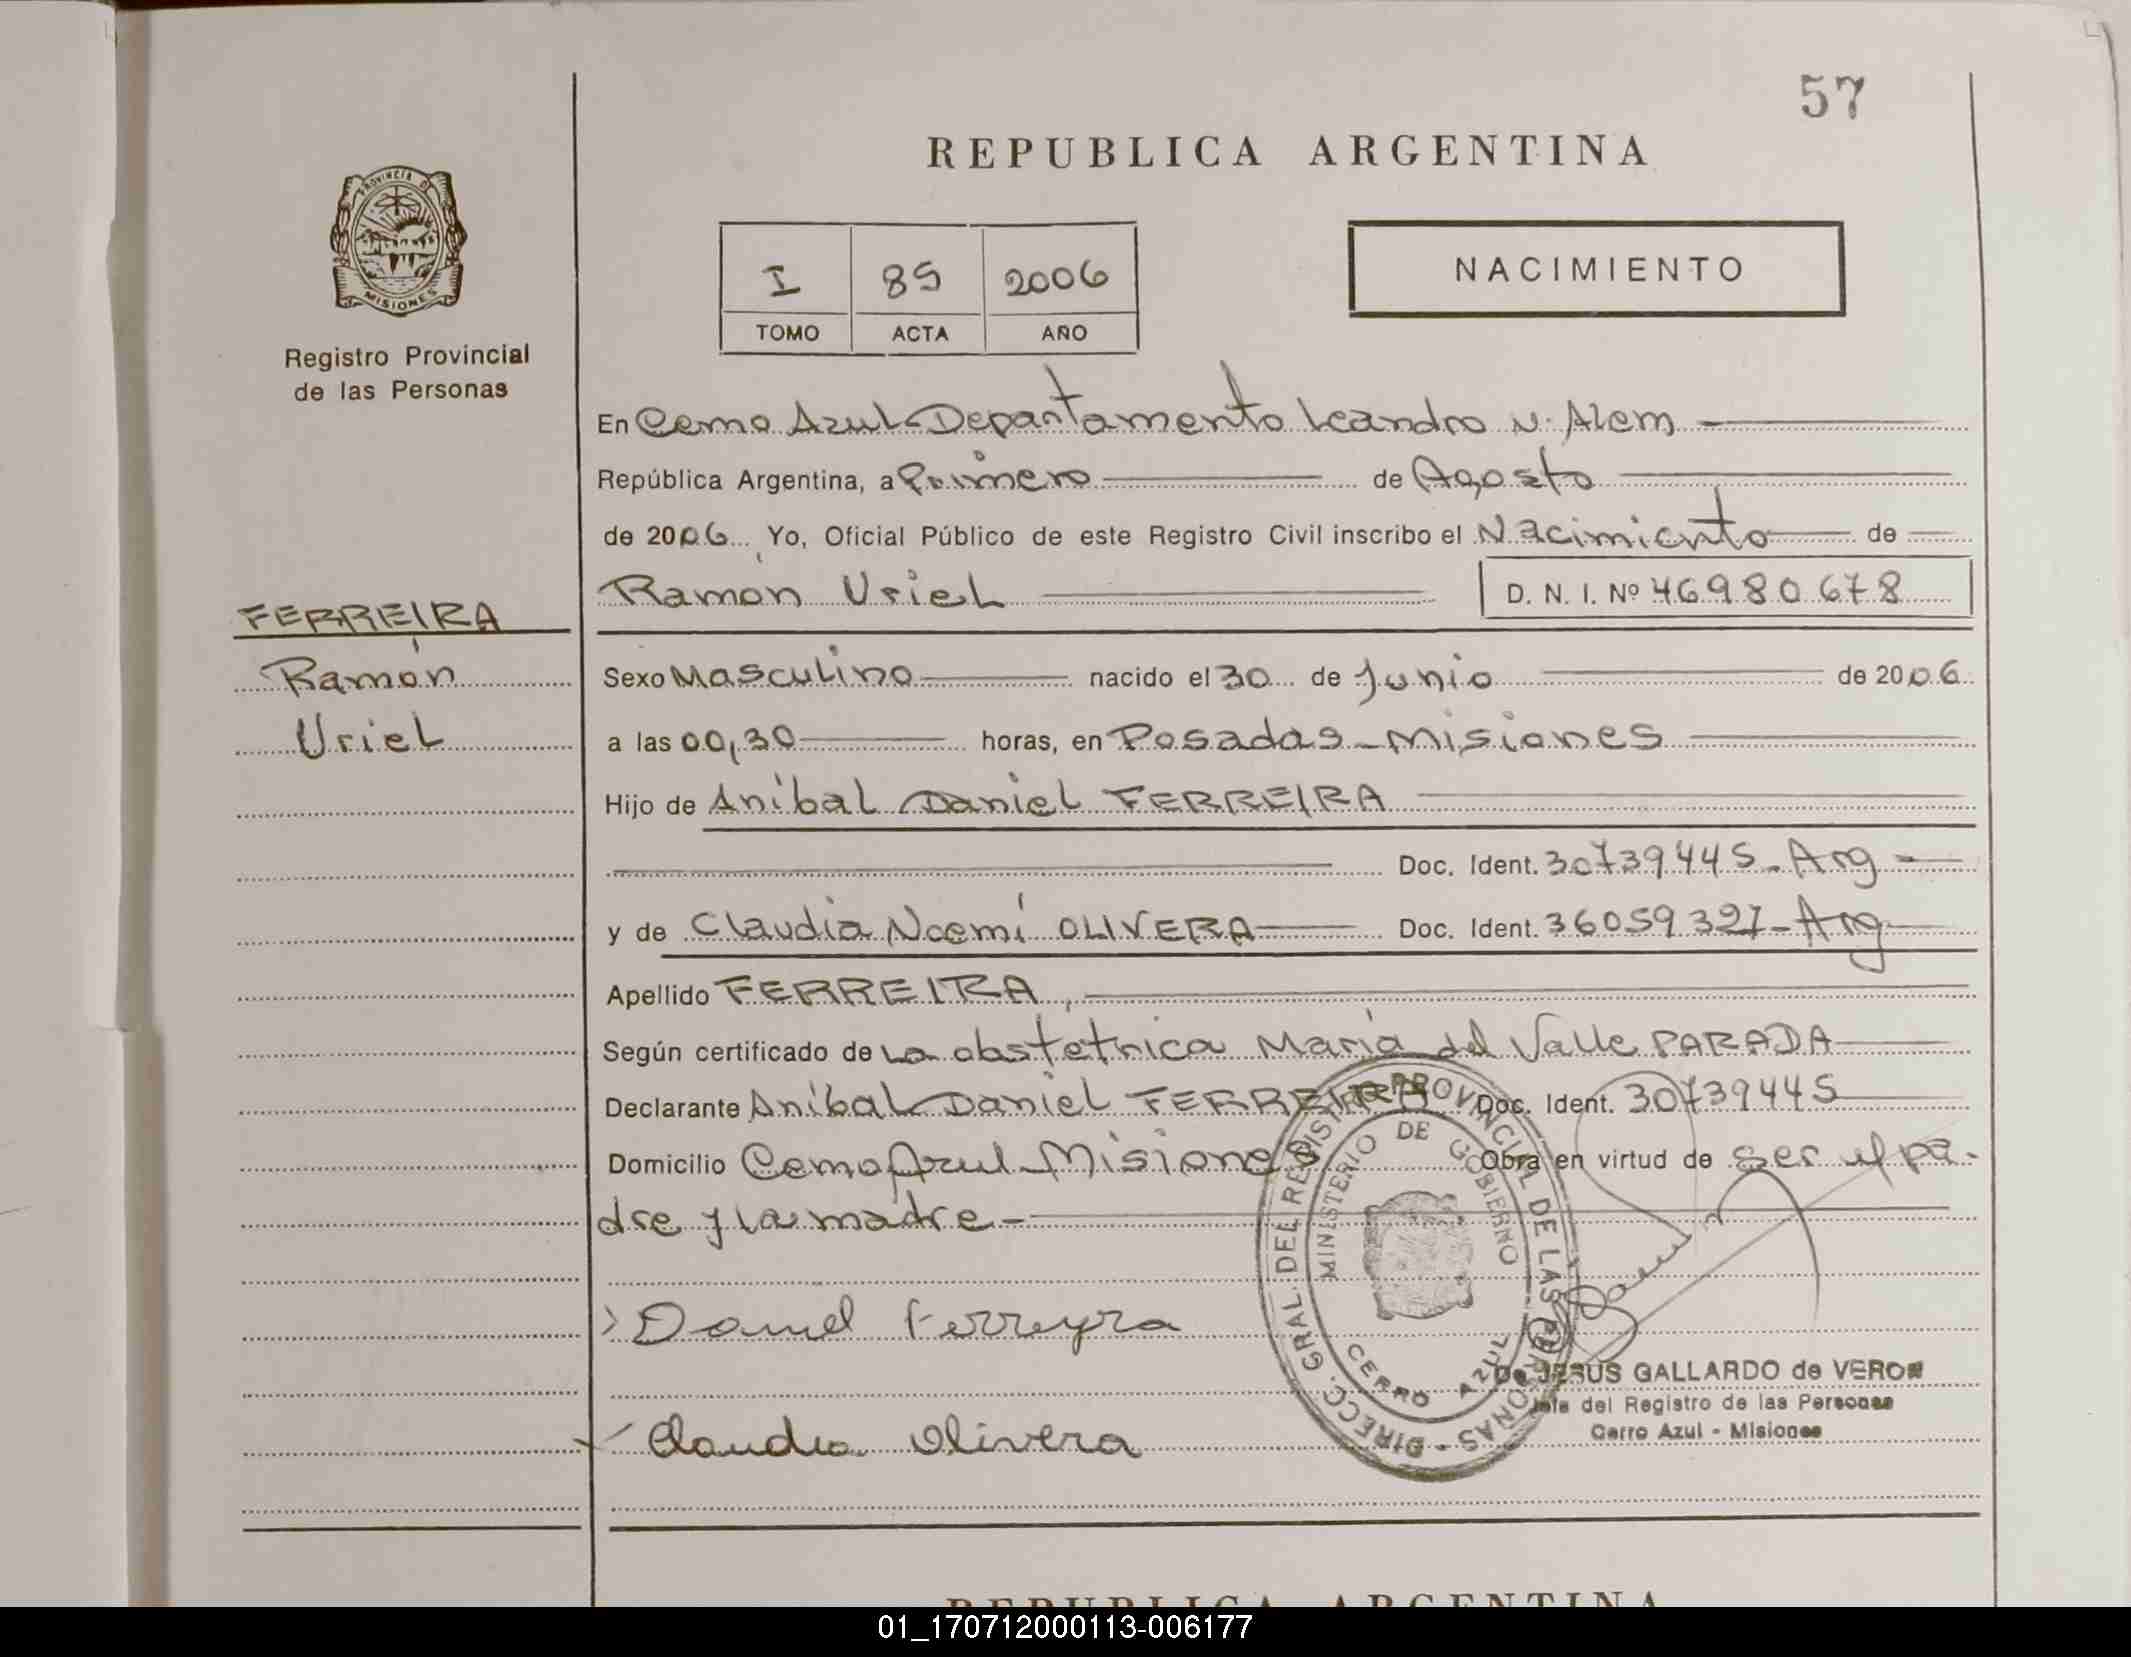 57
REPUBLICA ARGENTINA
PROVINCIA DE
MISIONES
Registro Provincial
de las Personas
I 85 2006
TOMO ACTA AÑO
NACIMIENTO
En Cerro Azul-Departamento Leandro N. Alem
República Argentina, a Primero de Agosto
de 2006 Yo, Oficial Público de este Registro Civil inscribo el Nacimiento de
Ramón Uriel D. N. I. Nº 46980678
FERREIRA
Ramón
Uriel
Sexo Masculino nacido el 30 de Junio de 2006
a las 00,30 horas, en Posadas-Misiones
Hijo de Aníbal Daniel FERREIRA
Doc. Ident. 30739445-Arg
y de Claudia Noemí OLIVERA Doc. Ident. 36059327-Arg
Apellido FERREIRA,
Según certificado de La obstétrica María del Valle PARADA
Declarante Aníbal Daniel FERREIRA Doc. Ident. 30739445
Domicilio Cerro Azul-Misiones Obra en virtud de ser el pa-
dre y la madre-
Daniel Ferreyra
Claudia Olivera
DIRECC. GRAL. DEL REGISTRO PROVINCIAL DE LAS PERSONAS -
MINISTERIO DE GOBIERNO
CERRO AZUL
De JESUS GALLARDO de VERON
Jefe del Registro de las Personas
Cerro Azul - Misiones
REPUBLICA ARGENTINA
01_170712000113-006177